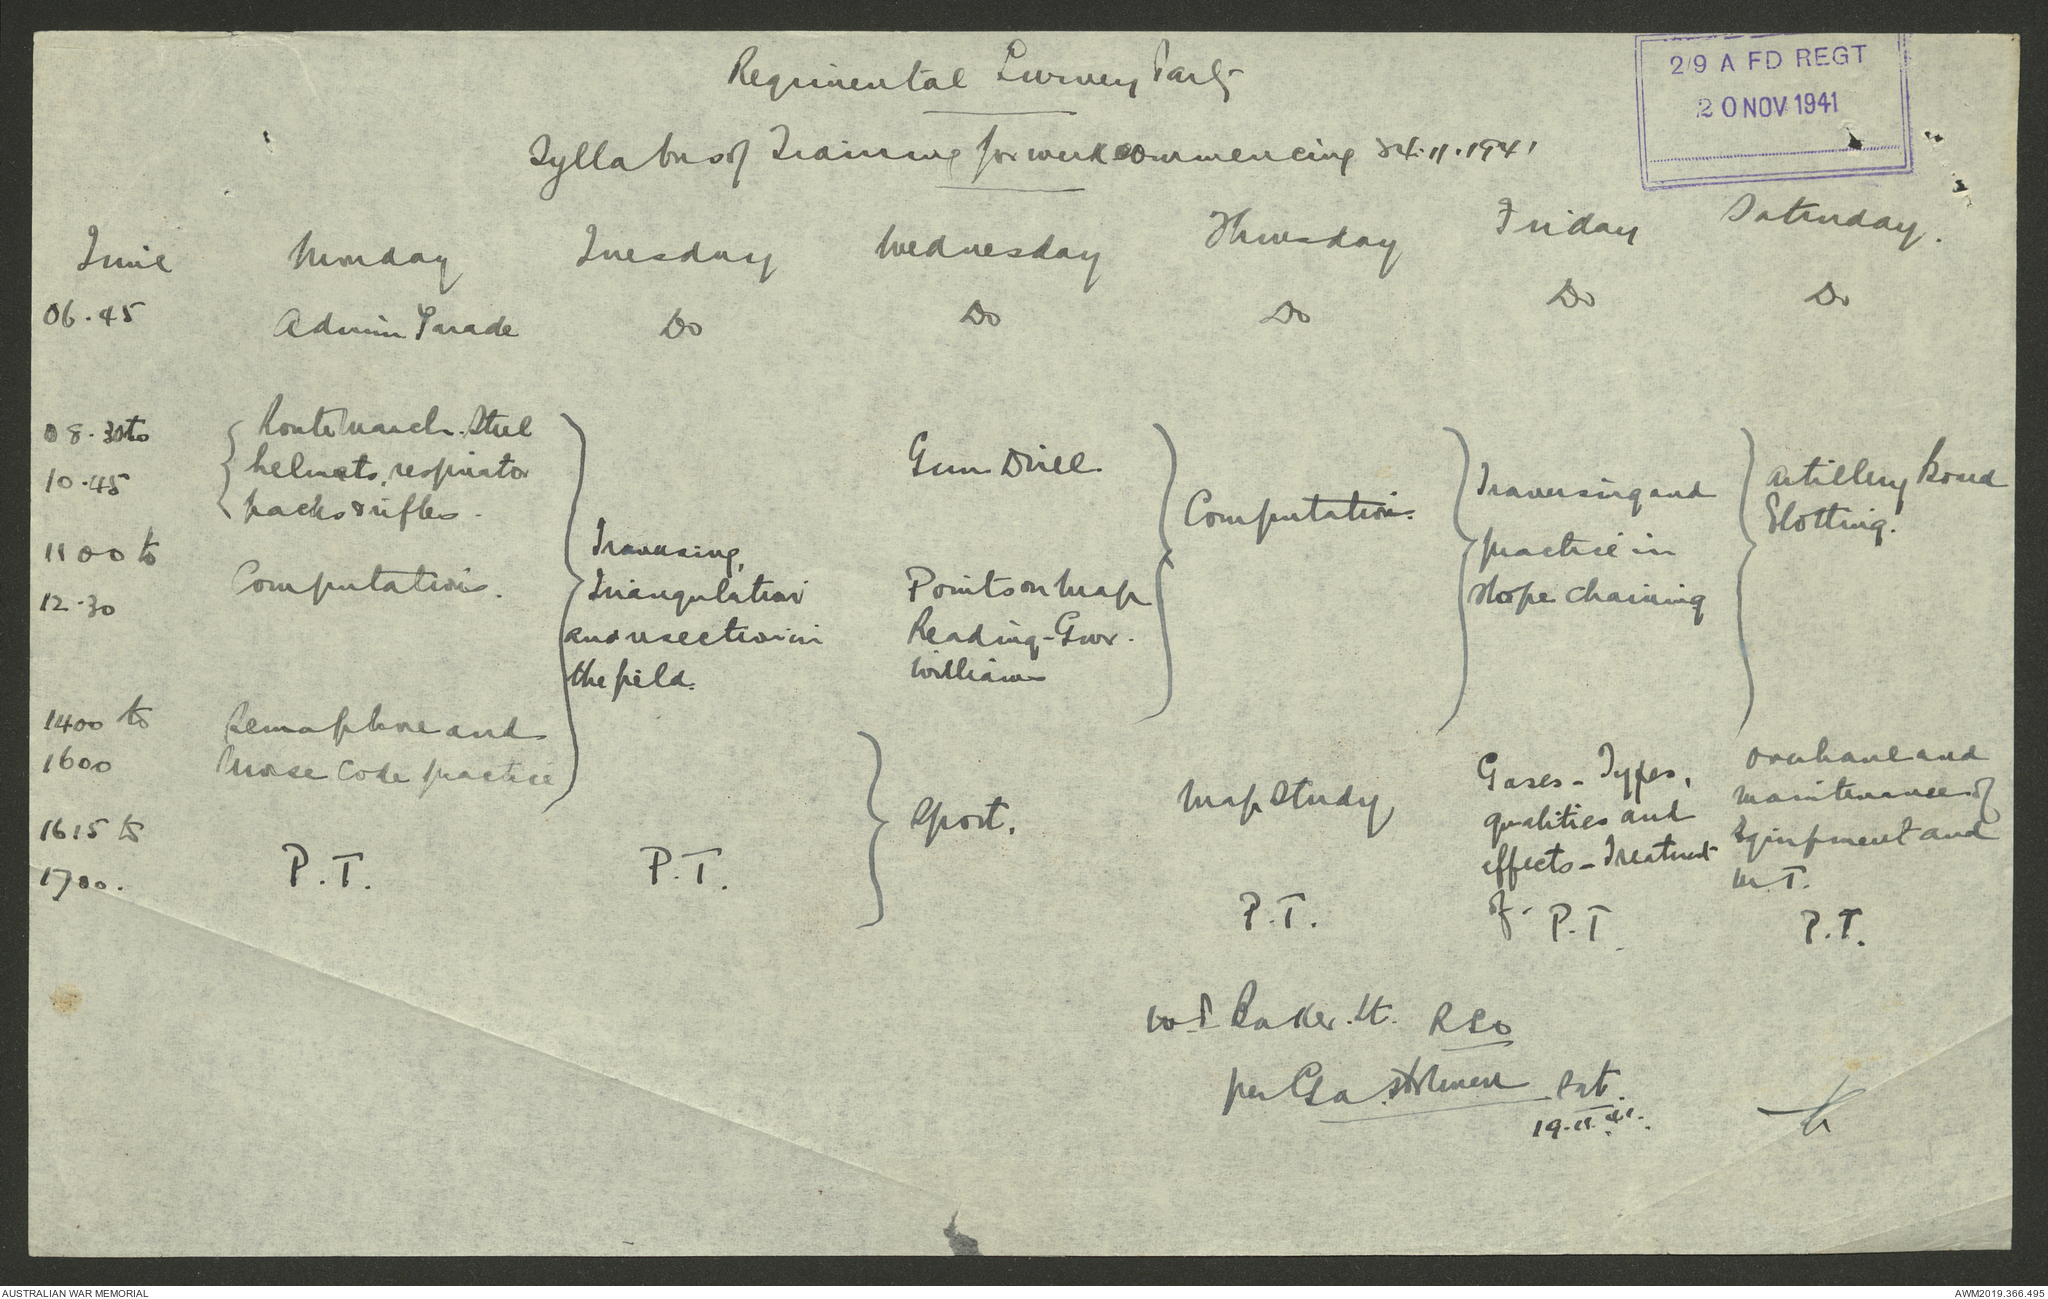 Regimental Survey Party
2/9 A FD REGT
20 NOV 1941
Syllabus of Training for week commencing 24.11.1941
Time Monday Tuesday Wednesday Thursday Friday Saturday.
06.45 Admin Parade Do Do Do Do Do
08.30 to
10.45
Route March. Steel
helmets, respirator
packs & rifles.
1100 to
12.30
Computations.
1400 to
1600
Semaphore and
Morse Code practice
1615 to
1700.
P.T.
Traversing,
Triangulation
and resection in
the field.
P.T.
Gun Drill.
Points on Map
Reading - Gnr.
Williams
Sport.
Computations.
Map Study
P.T.
Traversing and
practice in
slope chaining
Gases - Types,
qualities and
effects - Treatment
of.
P.T.
Artillery Board
Plotting.
Overhaul and
maintenance of
Equipment and
M.T.
P.T.
Baker. Lt. RSO
per
19.11.41.
AUSTRALIAN WAR MEMORIAL
AWM2019.366.495